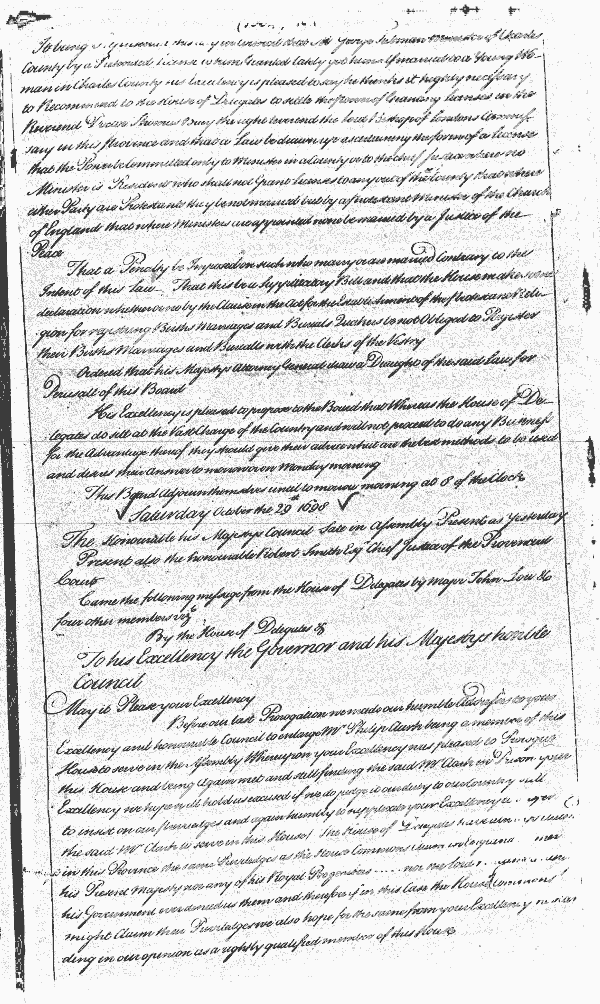 County by a Personal License to him Granted lately got himself married to a Young Wo-
man in Charles County his Excellency is pleased to say he thinks it highly necessary
to Recommend to the House of Delegates to settle the form of Granting licenses in the
Reverend the right reverend the lord Bishop of Londons Commis-
sary in this Province and that a Law be drawn up ascertaining the form of a License
that the Power be Committed only to Minister in a County or to the chief Justice where no
Minister is Resident who shall not Grant licenses to any out of the County that where
either Party are Protestants they be not married but by a Protestant Minister of the Church
of England that where Ministers are appointed none be married by a Justice of the
Peace
That a Penalty be Imposed on such who marry or are married Contrary to the
Intent of this Law That this be a Explanatory Bill and that the House make some
declaration whether or no by the Clause in the Act for the Establishment of the Protestant Reli-
gion for registring Births Marriages and Buryals Quakers is not Obliged to Register
their Births Marriages and Buryalls with the Clerks of the Vestry
Ordered that his Majestys Attorney General draw a Draught of the said Law for
Perusall of this Board
His Excellency is pleased to propose to the Board that Whereas the House of De-
legates do sitt at the Vast Charge of the Country and will not proceed to do any Business
for the Advantage thereof they should give their advice what are the best methods to be used
and desires their Answer to morrow or on Monday morning
This Board Adjourn themselves until to morrow morning at 8 of the Clock
Saturday October the 29th 1698
The Honourable his Majestys Council Sate in Assembly Present as Yesterday
Present also the honourable Robert Smith Esqr Chief Justice of the Provincial
Court
Came the following message from the House of Delegates by Major John Lowe &
four other members viz
By the House of Delegates &
To his Excellency the Governor and his Majestys honble
Council
May it Please your Excellency
Before our last Prorogation we made our humble Addresses to your
Excellency and honourable Council to enlarge Mr Philip Clark being a member of this
House to serve in the Assembly Whereupon your Excellency was pleased to Prorogue
this House and being again met and still finding the said Mr Clark in Prison your
Excellency we hope will hold us excused if we do judge it our duty to our Country still
to insist on our Priviledges and again humbly to
the said Mr Clark to serve in this House The House of Delegates
in this Province the same Priviledges as the House Commons
his Present Majesty nor any of his Royal Progenitors nor the lord
his Government ever denied us them and therefore if in this Case the House Commons
might Claim their Priviledges we also hope for the same from your Excellency
ding in our opinion as a rightly qualified member of this House